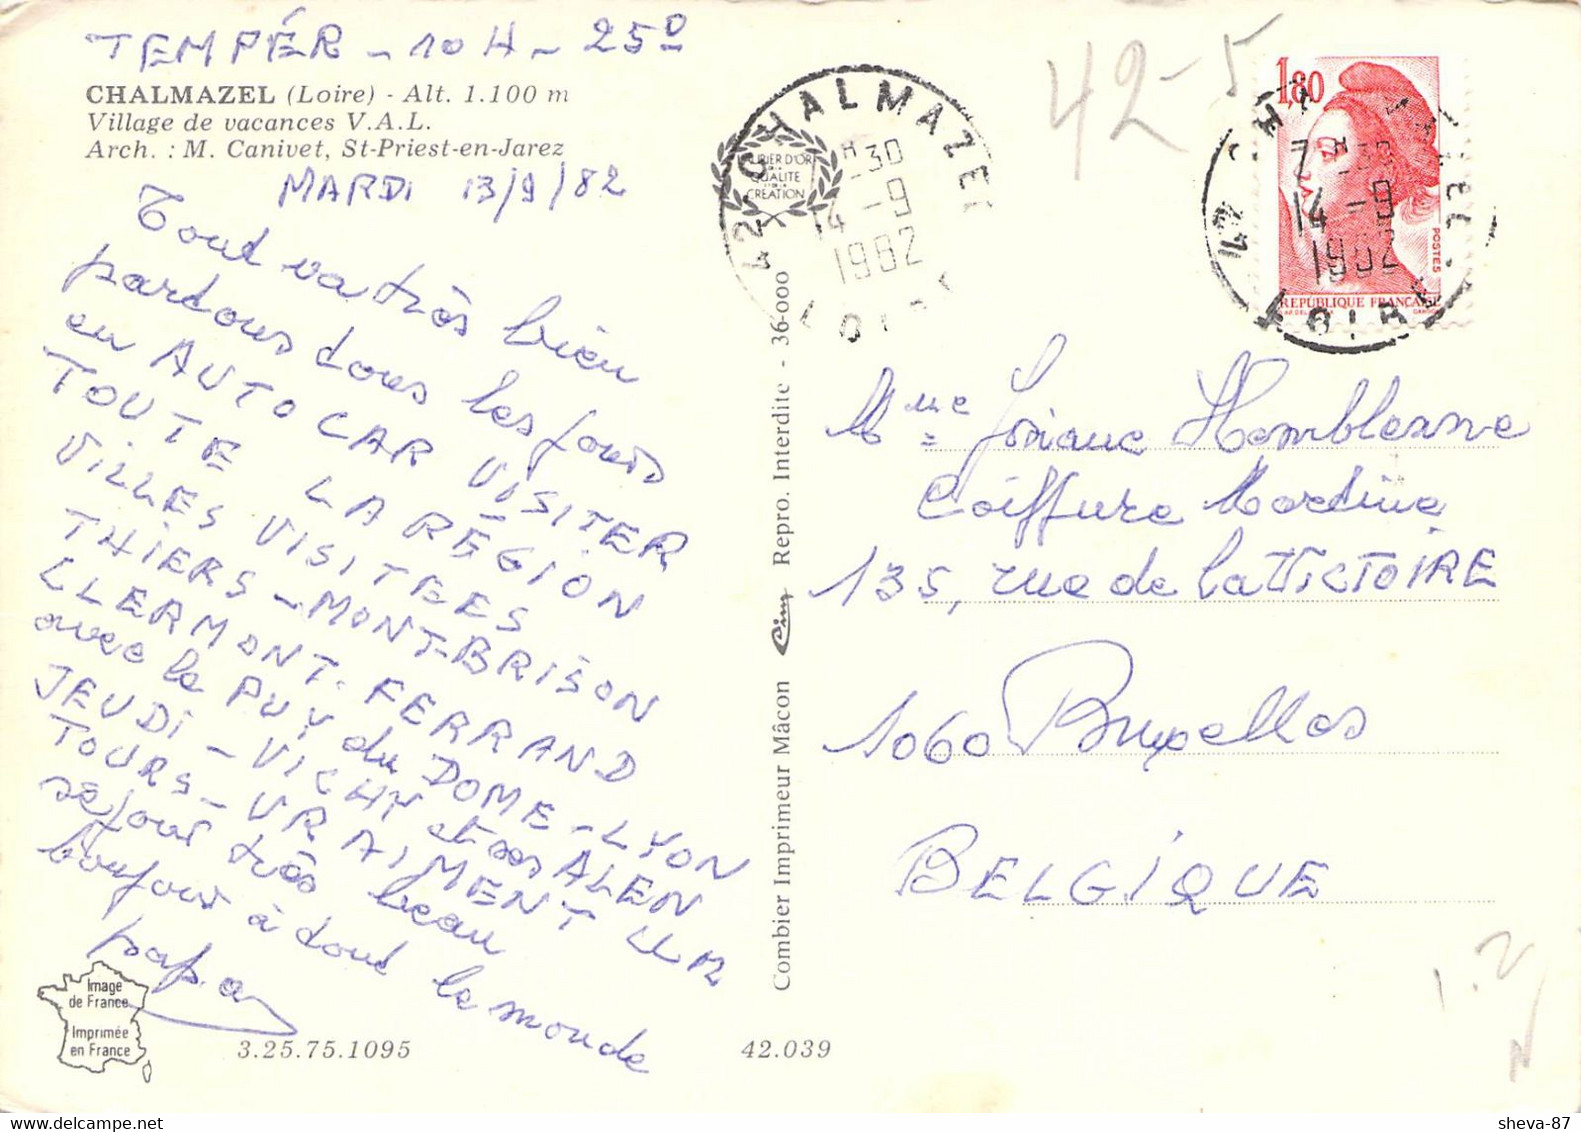 TEMPÉR - 10 H - 25º
CHALMAZEL (Loire) - Alt. 1.100 m
Village de vacances V.A.L.
Arch. : M. Canivet, St-Priest-en-Jarez
MARDI 13/9/82
Tout va très bien
partons tous les jours
en AUTOCAR VISITER
TOUTE LA RÉGION
VILLES VISITEES
THIERS - MONT-BRISON
CLERMONT-FERRAND
avec le PUY du DOME - LYON
JEUDI - VICHY et ses ALEN
TOURS - VRAIMENT UN
séjour très beau
bonjour à tout le monde
papa
Image
de France
Imprimée
en France
3.25.75.1095
42.039
Combier Imprimeur Mâcon Cim Repro. Interdite - 36-000
LAURIER D'OR
QUALITÉ
CRÉATION
42 CHALMAZEL
H 30
14 - 9
1982
LOIRE
42-5
1,80
POSTES
REPUBLIQUE FRANÇAISE
7 H 30
14 - 9
1982
LOIRE
Mme Josiane Hemblenne
Coiffure Martine
135, rue de la VICTOIRE
1060 Bruxelles
BELGIQUE
sheva-87